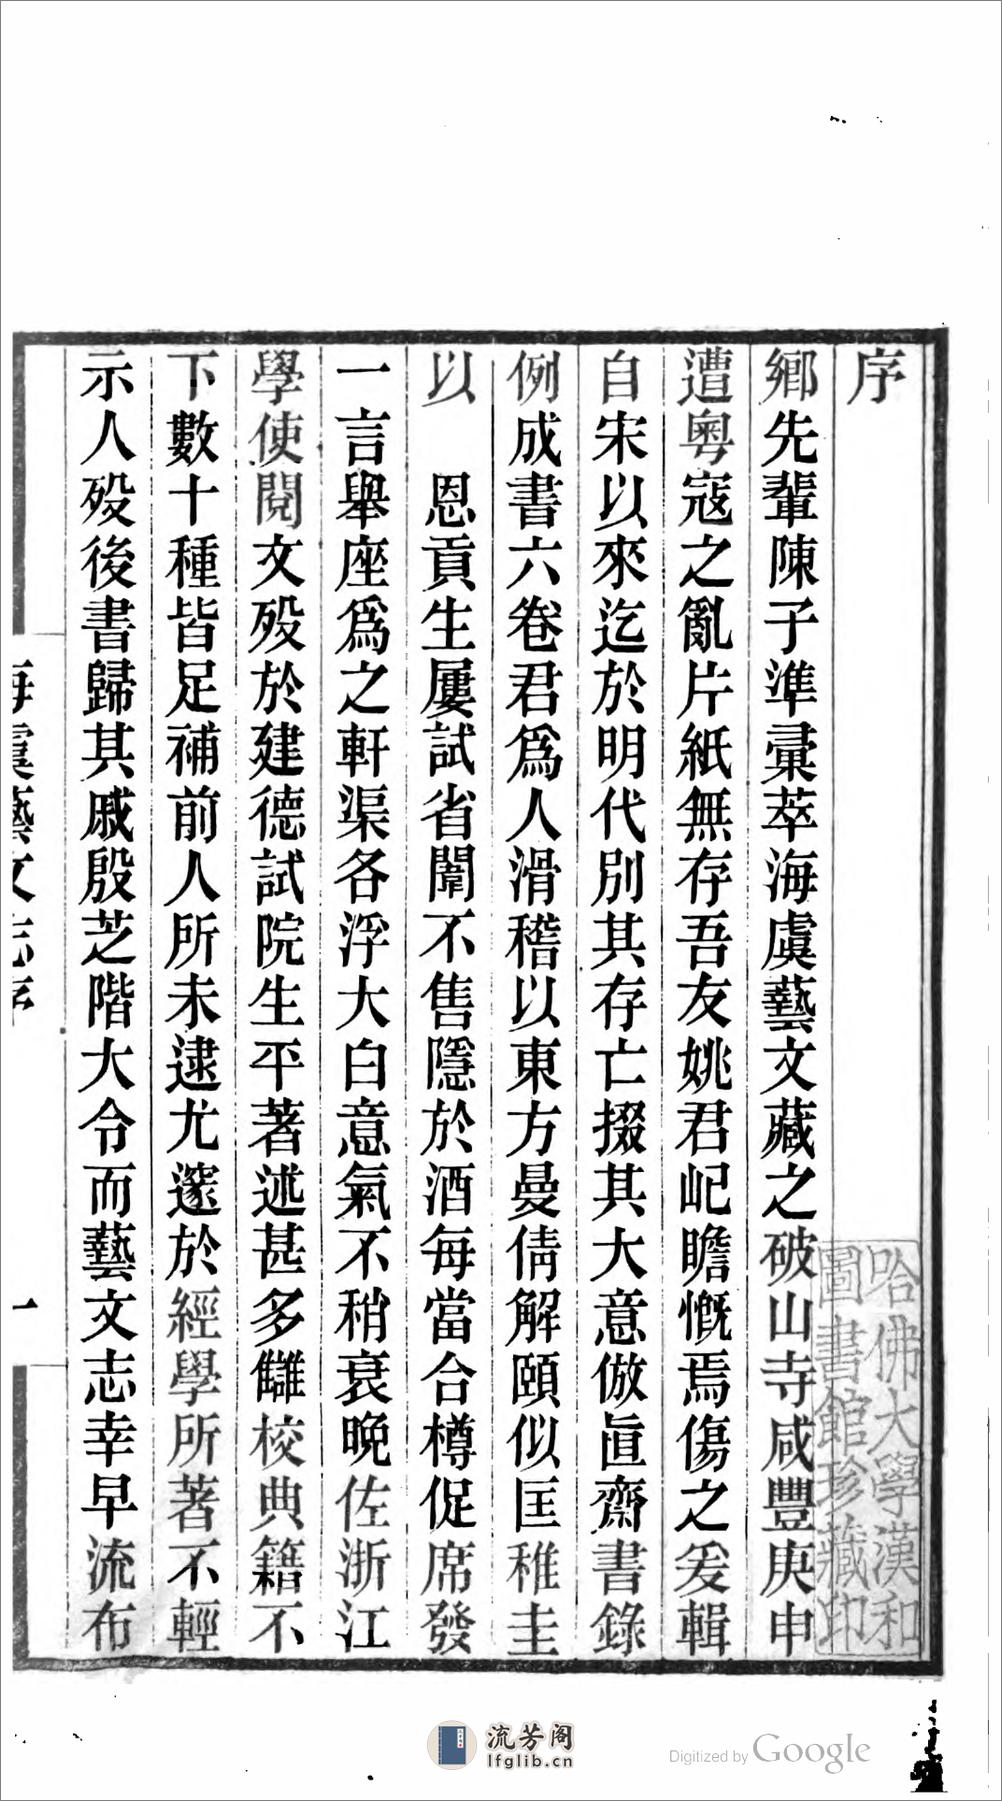 序
鄉先輩陳子準彚萃海虞藝文藏之破山寺咸豐庚申
遭粤寇之亂片紙無存吾友姚君屺瞻慨焉傷之爰輯
自宋以來迄於明代別其存亡掇其大意倣直齋書錄
例成書六卷君爲人滑稽以東方曼倩解頤似匡稚圭
以　恩貢生屢試省闈不售隱於酒每當合樽促席發
一言舉座爲之軒渠各浮大白意氣不稍衰晚佐浙江
學使閱文殁於建德試院生平著述甚多讎校典籍不
下數十種皆足補前人所未逮尤邃於經學所著不輕
示人殁後書歸其戚殷芝階大令而藝文志幸早流布
海虞藝文志序
一
哈佛大學漢和
圖書館珍藏印
流芳阁
lfglib.cn
Digitized by Google